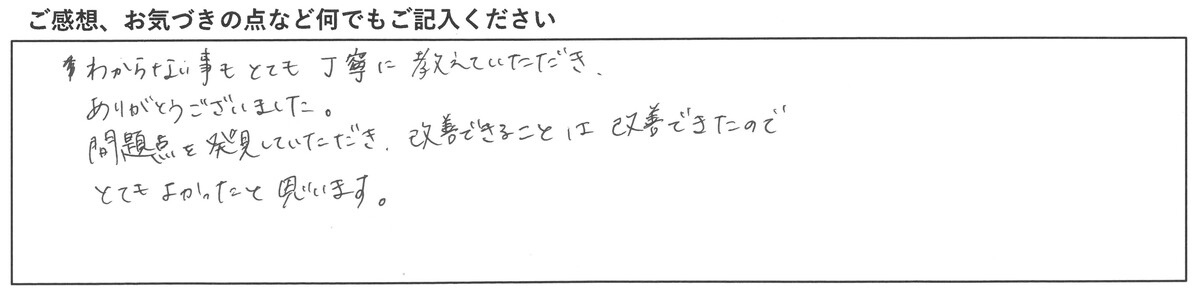 ご感想、お気づきの点など何でもご記入ください
わからない事もとても丁寧に教えていただき、
ありがとうございました。
問題点を発見していただき、改善できることは改善できたので
とてもよかったと思います。